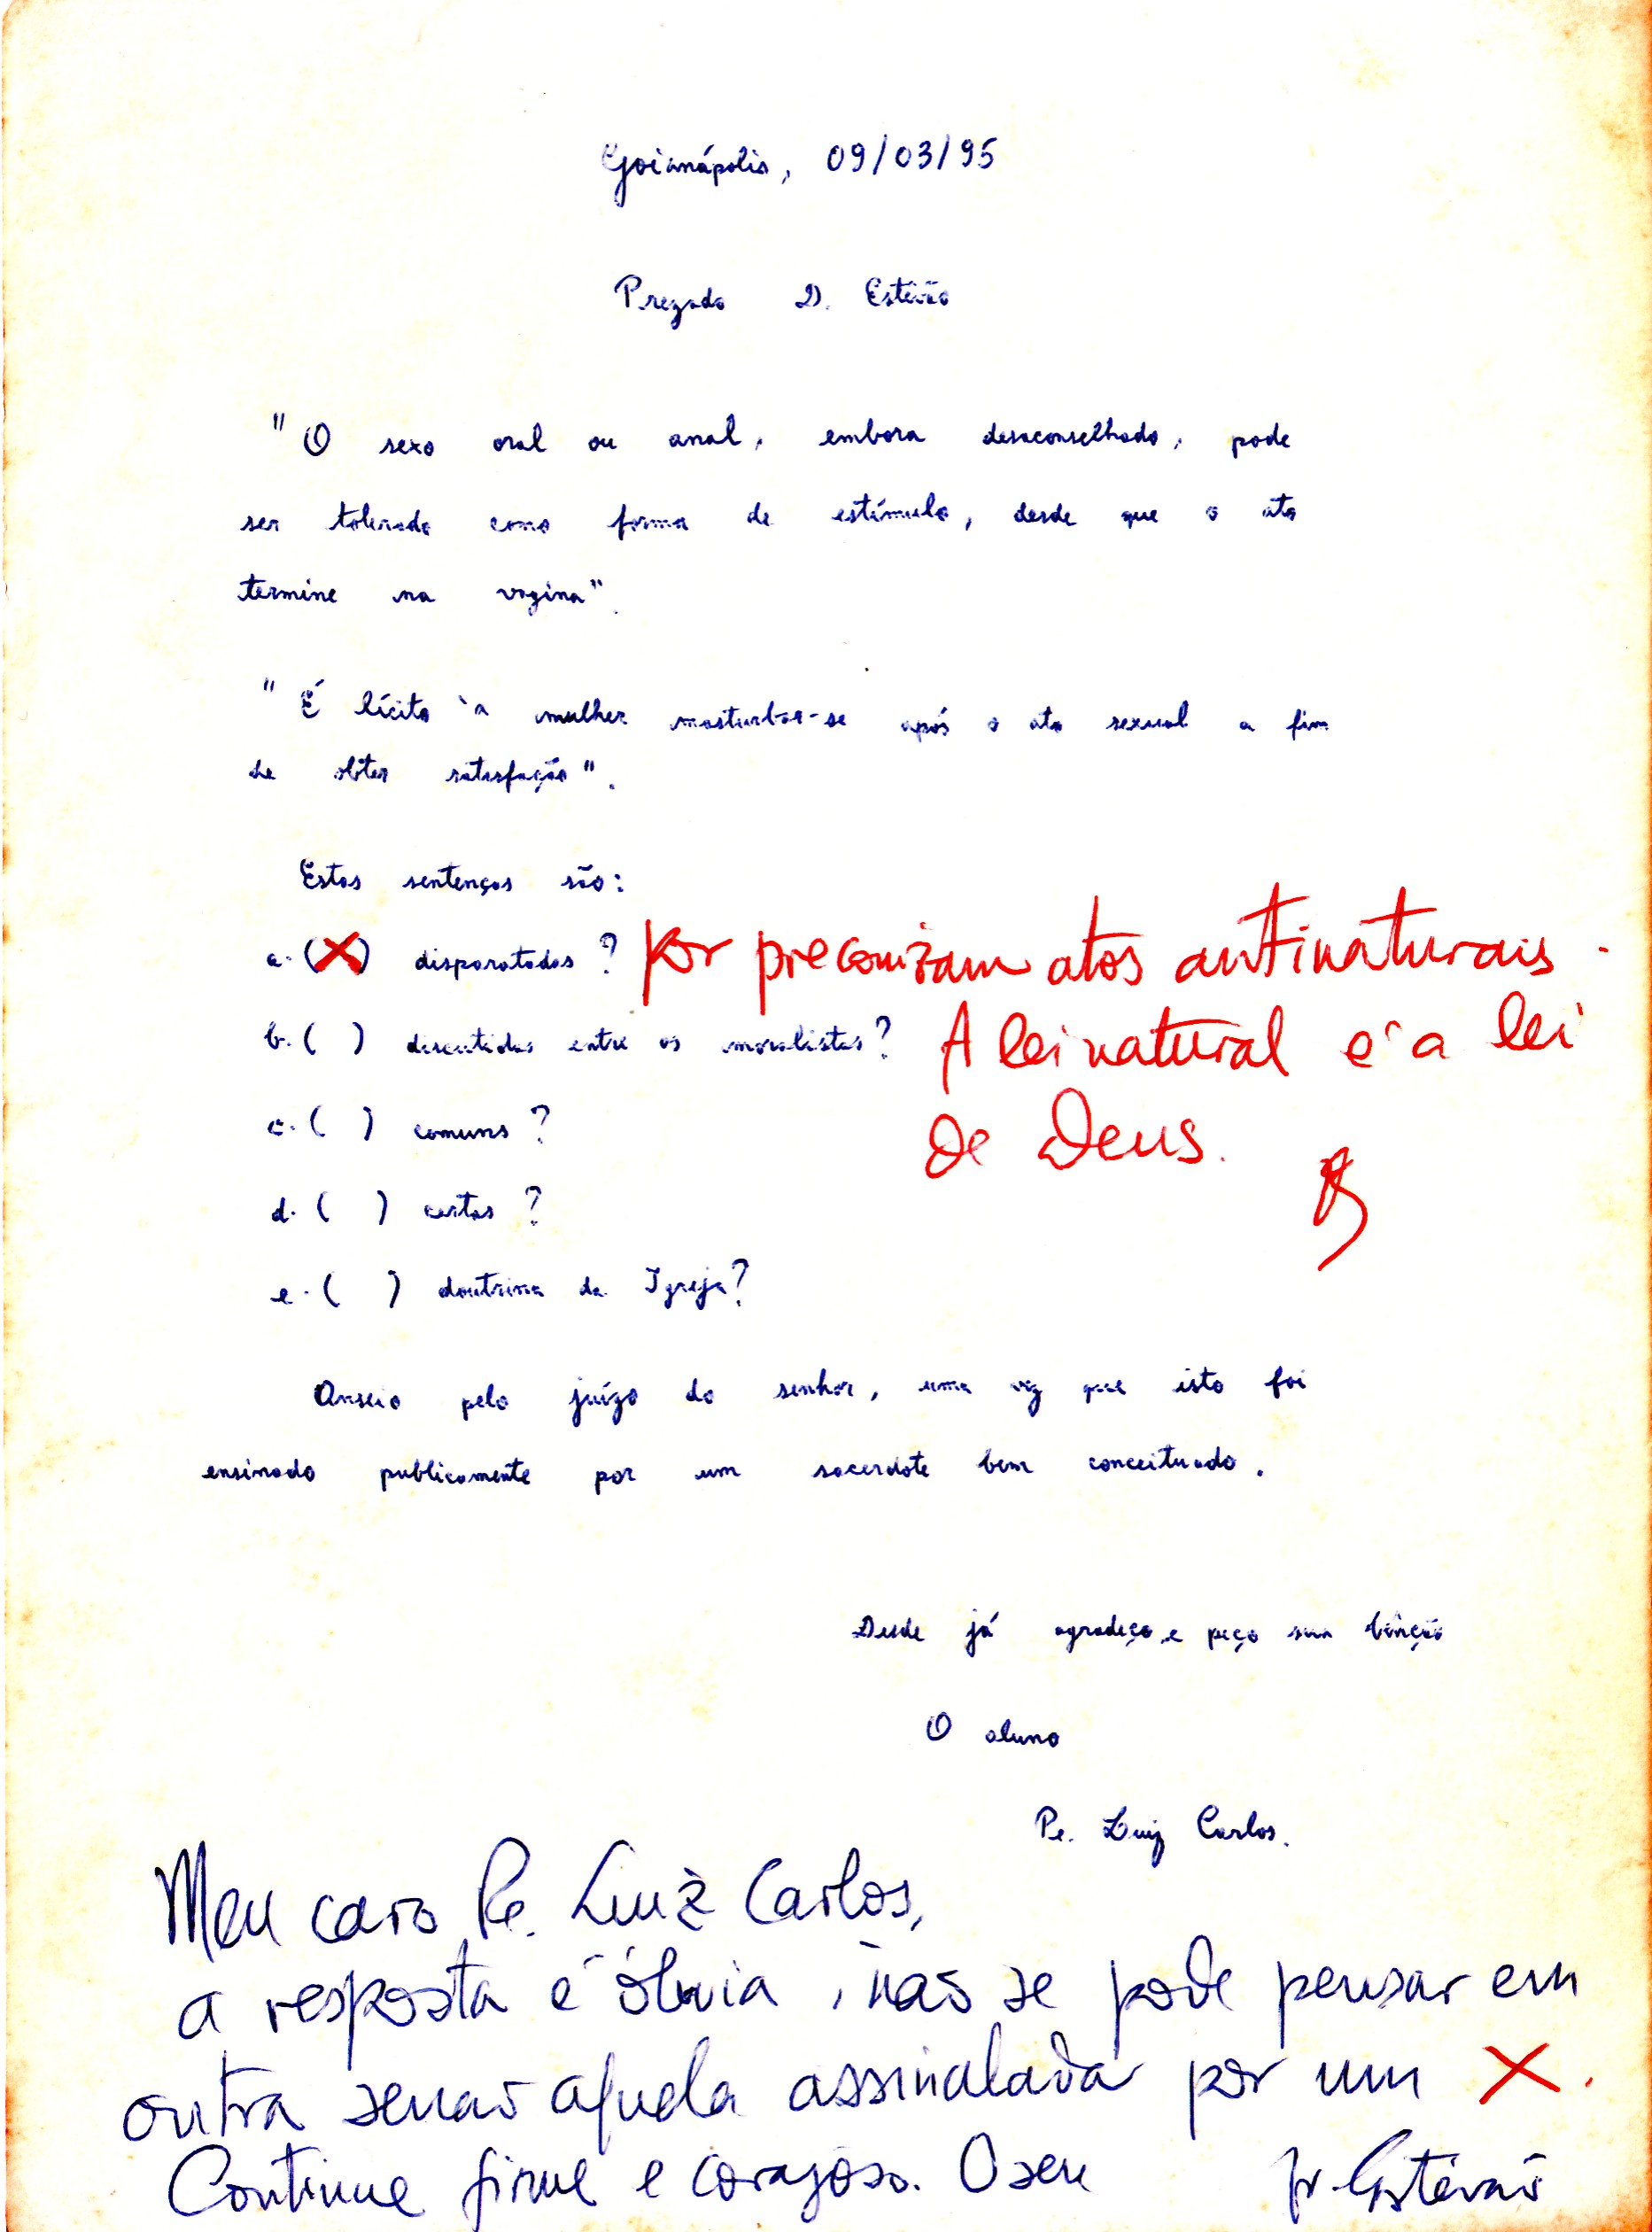 Goianápolis, 09/03/95
Prezado D. Estêvão
"O sexo oral ou anal, embora desaconselhado, pode
ser tolerado como forma de estímulo, desde que o ato
termine na vagina".
"É lícito à mulher masturbar-se após o ato sexual a fim
de obter satisfação".
Estas sentenças são:
a. (X) disparatadas? por preconizam atos antinaturais.
b. ( ) discutidas entre os moralistas? A lei natural é a lei
de Deus.
c. ( ) comuns?
d. ( ) certas?
e. ( ) doutrina da Igreja?
Anseio pelo juízo do senhor, uma vez que isto foi
ensinado publicamente por um sacerdote bem conceituado.
Desde já agradeço e peço sua bênção
O aluno
Pe. Luiz Carlos.
Meu caro Pe. Luiz Carlos,
a resposta é óbvia, não se pode pensar em
outra senão aquela assinalada por um X.
Continue firme e corajoso. O seu
Estêvão